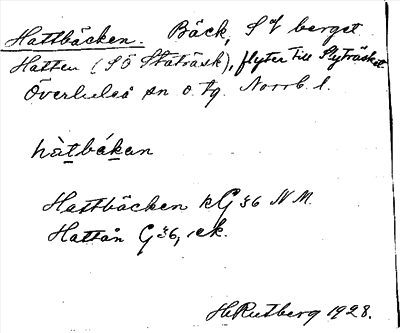 Hattbäcken. Bäck, S of berget
Hatten (SÖ Staträsk), flyter till Flyträsket
Överluleå sn o. tg. Norrb. l.
hàtbäkan
Hattbäcken kG 36 NM.
Hattån G 36, ek.
H Rutberg 1928.